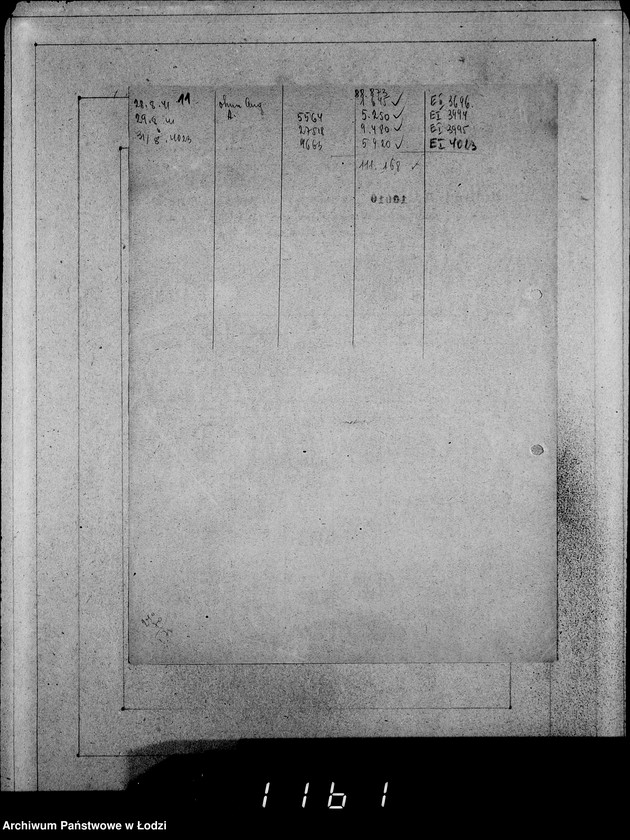 88.873
28.8.41 11 ohne Ang 1.645 ✓ EI 3696.
29.8. 41 A. 5564 5.250 ✓ EI 3994
2758 9.480 ✓ EI 3995
31/8. 4023 4663 5 920 ✓ EI 4023
111.168 ✓
01001
1161
Archiwum Państwowe w Łodzi